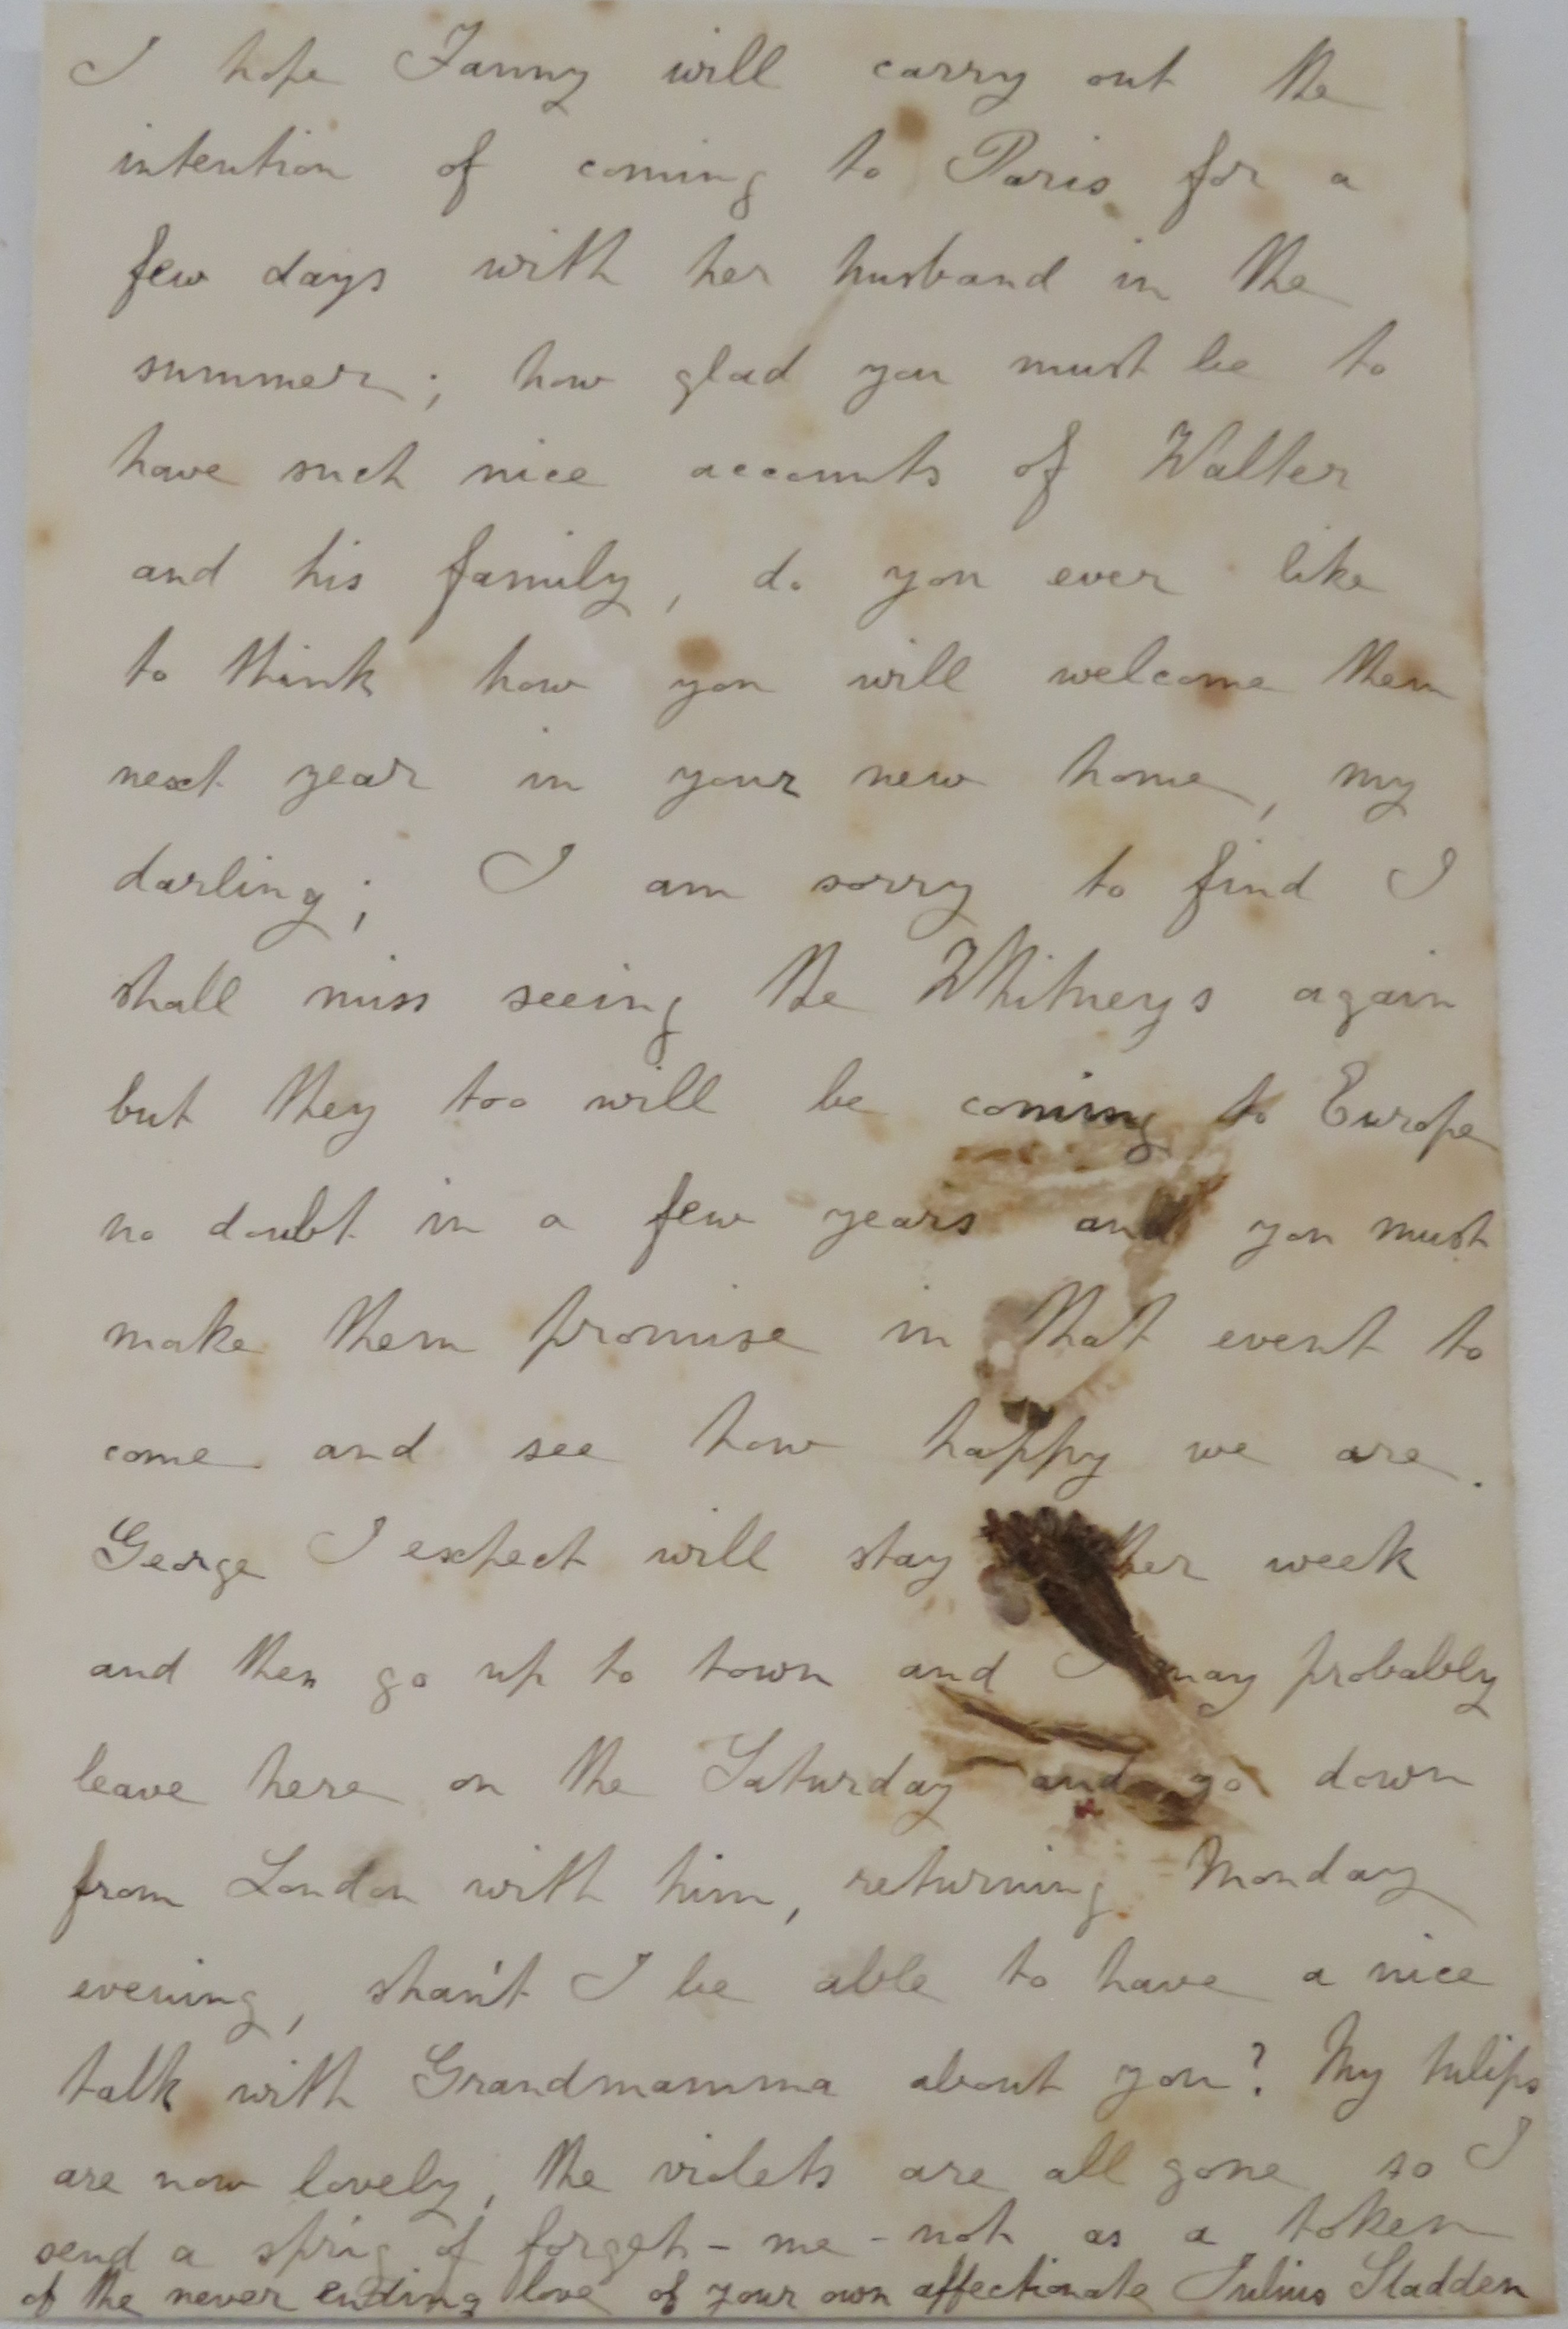 I hope Fanny will carry out the
intention of coming to Paris for a
few days with her husband in the
summer; how glad you must be to
have such nice accounts of Walter
and his family, do you ever like
to think how you will welcome them
next year in your new home, my
darling; I am sorry to find I
shall miss seeing the Whitneys again
but they too will be coming to Europe
no doubt in a few years and you must
make them promise in that event to
come and see how happy we are.
George I expect will stay ther week
and then go up to town and I may probably
leave here on the Saturday and go down
from London with him, returning Monday
evening, shan't I be able to have a nice
talk with Grandmamma about you? My tulips
are now lovely, the violets are all gone so I
send a sprig of forget-me-not as a token
of the never ending love of your own affectionate Julius Sladden